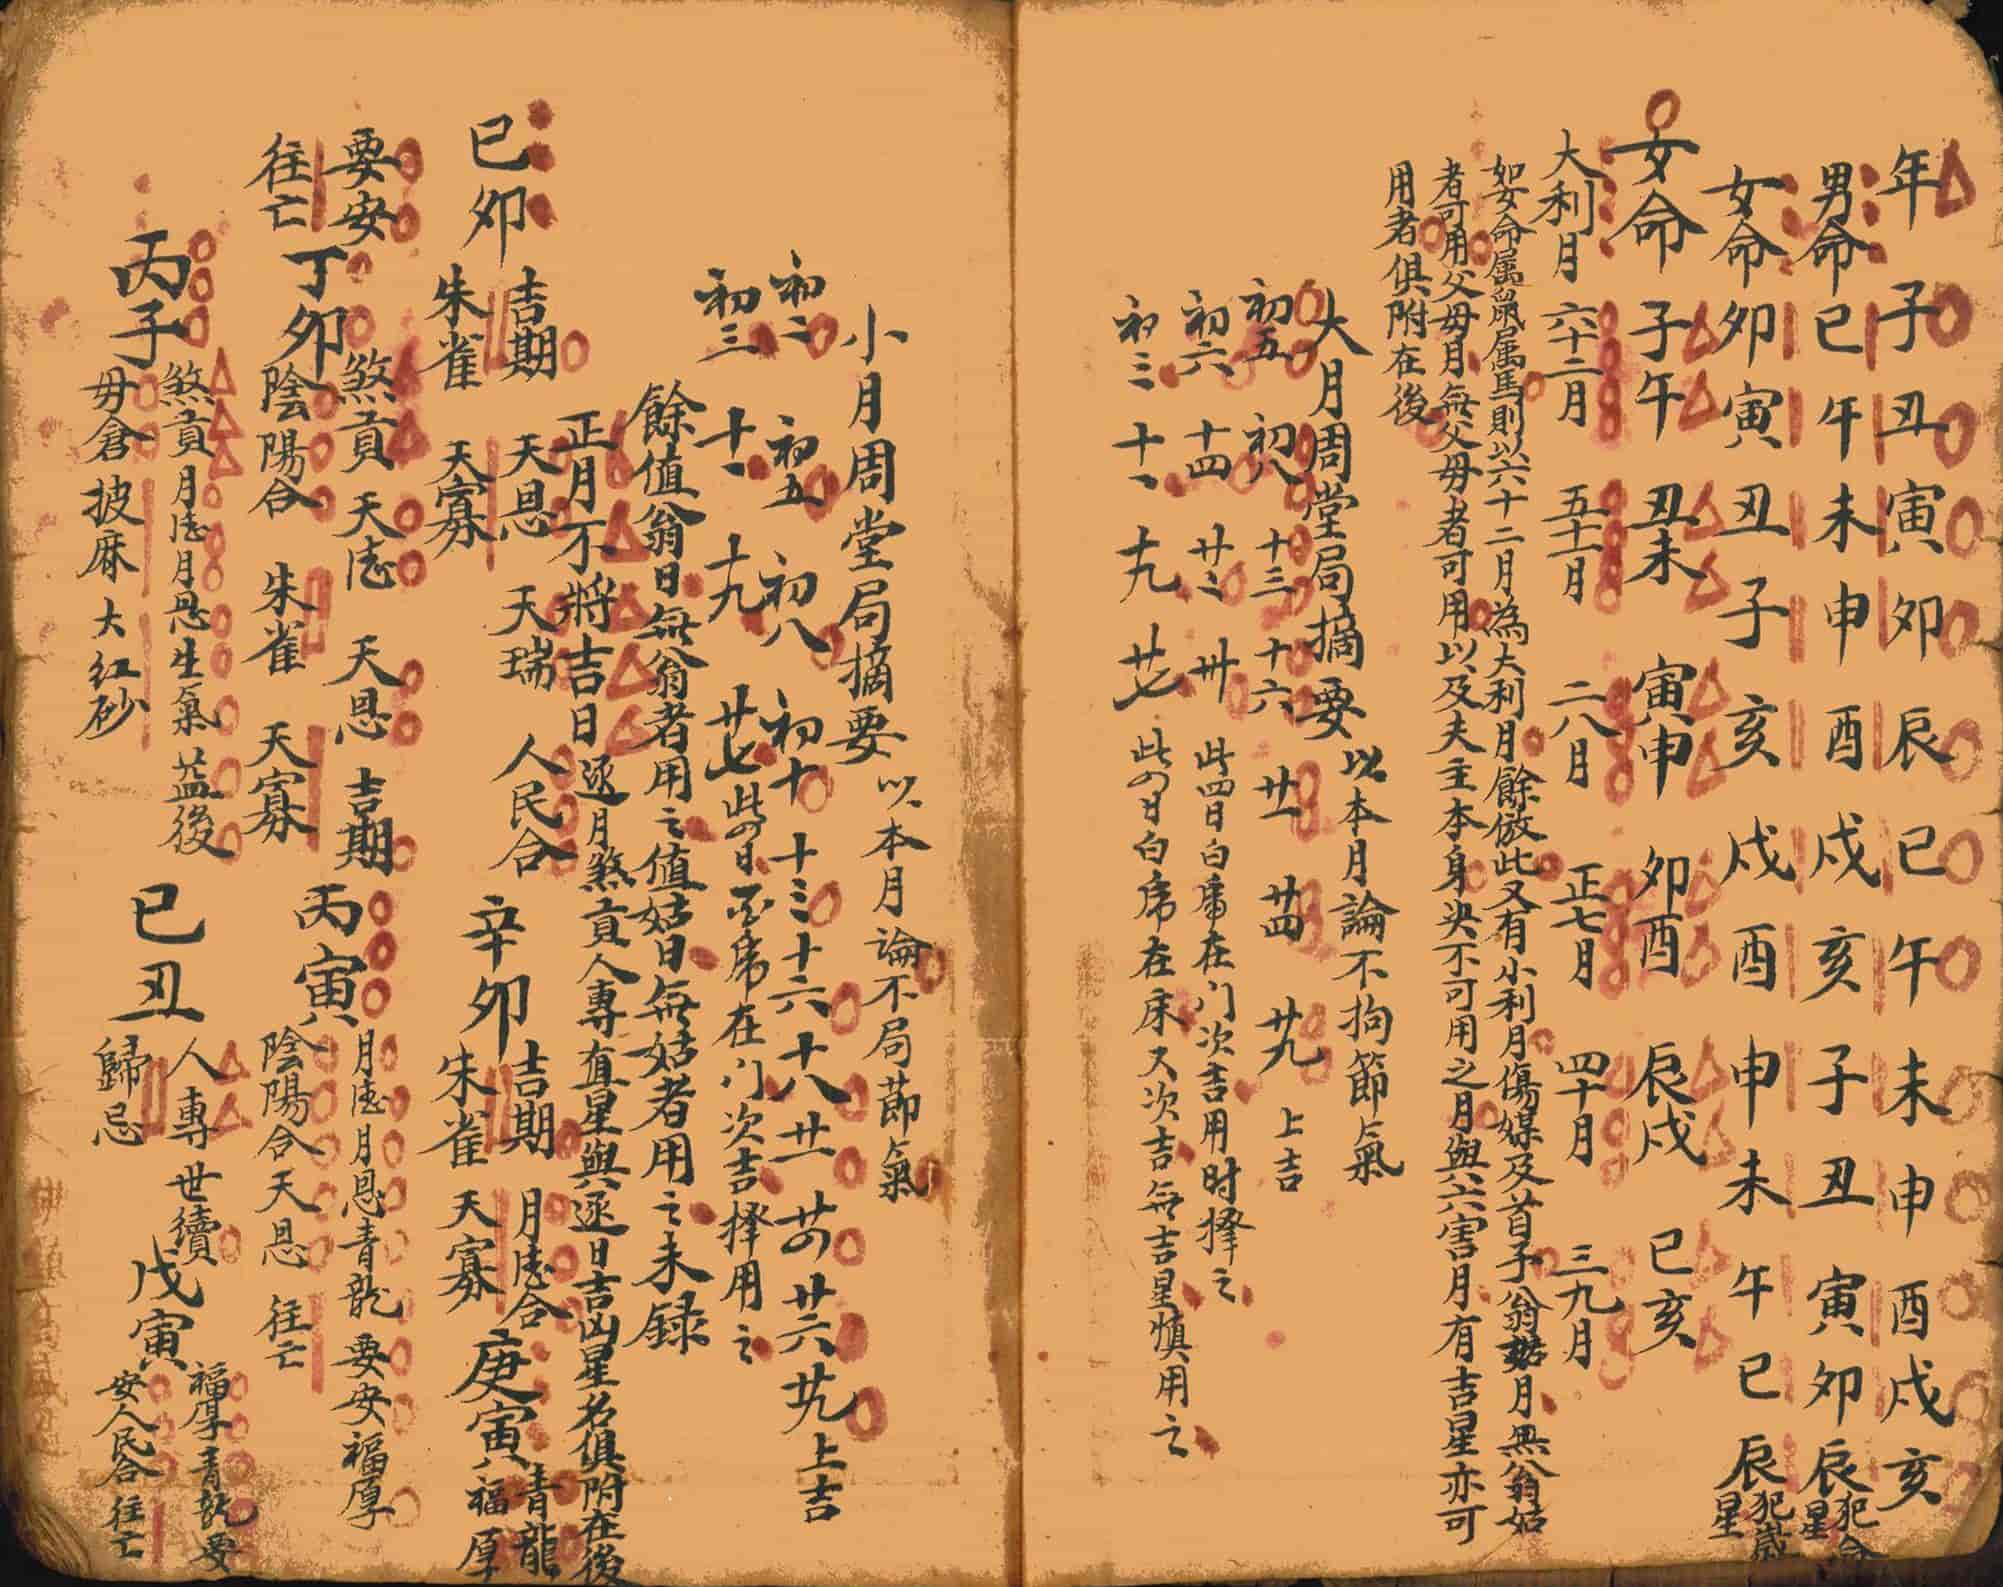 年 子 丑 寅 卯 辰 巳 午 未 申 酉 戍 亥
男命 巳 午 未 申 酉 戍 亥 子 丑 寅 卯 辰 犯命星
女命 卯 寅 丑 子 亥 戍 酉 申 未 午 巳 辰 犯嵗星
女命 子午 丑未 寅申 卯酉 辰戍 巳亥
大利月 六十二月 五十一月 二八月 正七月 四十月 三九月
如女命属鼠属馬則以六十二月為大利月餘倣此又有小利月傷媒及首子翁姑月無翁姑
者可用父母月無父毋者可用以及夫主本身决不可用之月與六害月有吉星亦可
用者俱附在後
大月周堂局摘要 以本月論不拘節氣
初五 初八 十三 十六 廿一 廿四 廿九 上吉
初六 十四 廿二 卅 此四日白席在门次吉用时擇之
初三 十一 十九 廿七 此四日白席在床又次吉無吉星慎用之
小月周堂局摘要 以本月論不局莭氣
初二 初五 初八 初十 十三 十六 十八 廿一 廿四 廿六 廿九 上吉
初三 十一 十九 廿七 此四日白席在门次吉擇用之
餘值翁日無翁者用之值姑日無姑者用之未録
正月不將吉日逐月煞貢人專直星與逐日吉凶星名俱附在後
巳卯 吉期 天恩 天瑞 人民合 朱雀 天寡 辛卯 吉期 月徳合 朱雀 天寡 庚寅 青龍 福厚
要安 往亡 丁卯 煞貢 天徳 天恩 吉期 陰陽合 朱雀 天寡 丙寅 月徳月恩青龍 要安 福厚 陰陽合天恩 往亡
丙子 煞貢月徳月恩生氣益後 毋倉 披麻 大红砂 巳丑 人專 世續 歸忌 戊寅 福厚青龍要安人民合 往亡